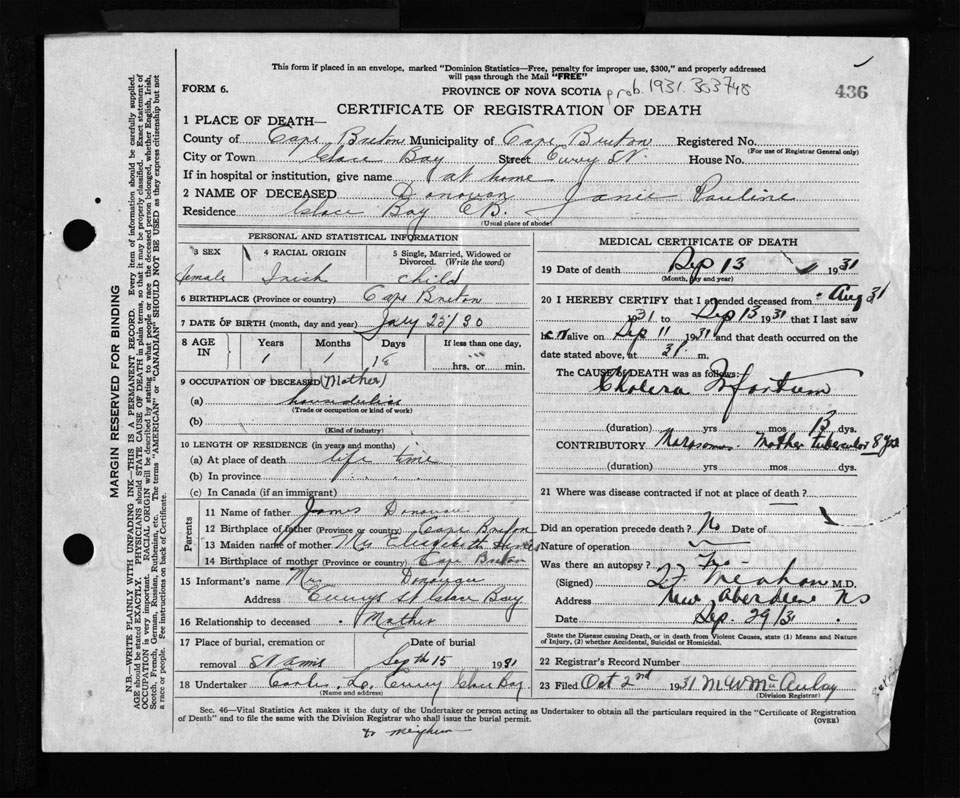 This form if placed in an envelope, marked "Dominion Statistics—Free, penalty for improper use, $300," and properly addressed
will pass through the Mail "FREE"
FORM 6.
PROVINCE OF NOVA SCOTIA prob. 1931. 303748
436
CERTIFICATE OF REGISTRATION OF DEATH
1 PLACE OF DEATH—
County of Cape Breton Municipality of Cape Breton Registered No.
(For use of Registrar General only)
City or Town Glace Bay Street Curry St. House No.
If in hospital or institution, give name at home
2 NAME OF DECEASED Donovan Janie Pauline
Residence Glace Bay CB.
(Usual place of abode)
PERSONAL AND STATISTICAL INFORMATION
3 SEX
female
4 RACIAL ORIGIN
Irish
5 Single, Married, Widowed or
Divorced. (Write the word)
child
6 BIRTHPLACE (Province or country) Cape Breton
7 DATE OF BIRTH (month, day and year) 25/30
8 AGE
IN
Years
1
Months
1
Days
18
If less than one day,
hrs. or min.
9 OCCUPATION OF DECEASED (Mother)
(a)
(Trade or occupation or kind of work)
(b)
(Kind of industry)
10 LENGTH OF RESIDENCE (in years and months)
(a) At place of death life time
(b) In province
(c) In Canada (if an immigrant)
Parents
11 Name of father James Donovan
12 Birthplace of father (Province or country) Cape Breton
13 Maiden name of mother Mrs Elizabeth
14 Birthplace of mother (Province or country) Cape Breton
15 Informant's name Mrs Donovan
Address Currys St Glace Bay
16 Relationship to deceased Mother
17 Place of burial, cremation or
removal St Anns
Date of burial
Sept 15 1931
18 Undertaker Curry Glace Bay
(Name and address)
MEDICAL CERTIFICATE OF DEATH
19 Date of death Sep 13 1931
(Month, day and year)
20 I HEREBY CERTIFY that I attended deceased from Aug 31
1931 to Sep 13 1931 that I last saw
her alive on Sep 11 1931 and that death occurred on the
date stated above, at m.
The CAUSE OF DEATH was as follows:
Cholera Infantum
(duration) yrs mos 13 dys.
CONTRIBUTORY Mother tubercular 8 yrs
(duration) yrs mos dys.
21 Where was disease contracted if not at place of death?
Did an operation precede death? No Date of
Nature of operation
Was there an autopsy?
(Signed) M.D.
Address New Aberdeen NS
Date Sep. 29/31
State the Disease causing Death, or in death from Violent Causes, state (1) Means and Nature
of Injury, (2) whether Accidental, Suicidal or Homicidal.
22 Registrar's Record Number
23 Filed Oct 2nd 1931 M W McAulay
(Division Registrar)
Sec. 46—Vital Statistics Act makes it the duty of the Undertaker or person acting as Undertaker to obtain all the particulars required in the "Certificate of Registration
of Death" and to file the same with the Division Registrar who shall issue the burial permit.
(OVER)
MARGIN RESERVED FOR BINDING
N.B.—WRITE PLAINLY WITH UNFADING INK—THIS IS A PERMANENT RECORD. Every item of information should be carefully supplied.
AGE should be stated EXACTLY. PHYSICIANS should STATE CAUSE OF DEATH in plain terms, so that it may be properly classified. Exact statement of
OCCUPATION is very important. RACIAL ORIGIN will be described by stating to what people or race the deceased person belonged, whether English, Irish,
Scotch, French, German, Russian, Ruthenian, etc. The terms "AMERICAN" or "CANADIAN" SHOULD NOT BE USED as they express citizenship but not
a race or people. Fee instructions on back of Certificate.